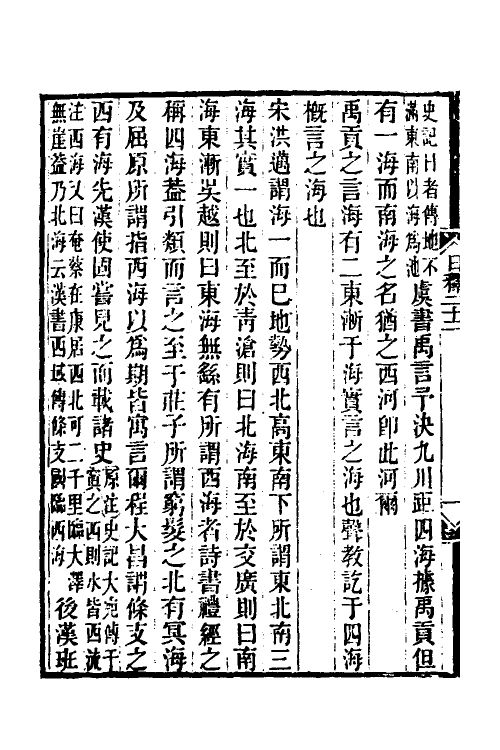 史記日者傳地不
滿東南以海為池
虞書禹言予決九川距四海據禹貢但
有一海而南海之名猶之西河卽此河爾
禹貢之言海有二東漸于海實言之海也聲教訖于四海
概言之海也
宋洪邁謂海一而已地勢西北高東南下所謂東北南三
海其實一也北至於青滄則曰北海南至於交廣則曰南
海東漸吳越則曰東海無繇有所謂西海者詩書禮經之
稱四海葢引類而言之至于莊子所謂窮髮之北有冥海
及屈原所謂指西海以為期皆寓言爾程大昌謂條支之
西有海先漢使固嘗見之而載諸史
原注史記大宛傳于
窴之西則水皆西流
注西海又曰奄蔡在康居西北可二千里臨大澤
無崖葢乃北海云漢書西域傳條支國臨西海
後漢班
日知錄二十二